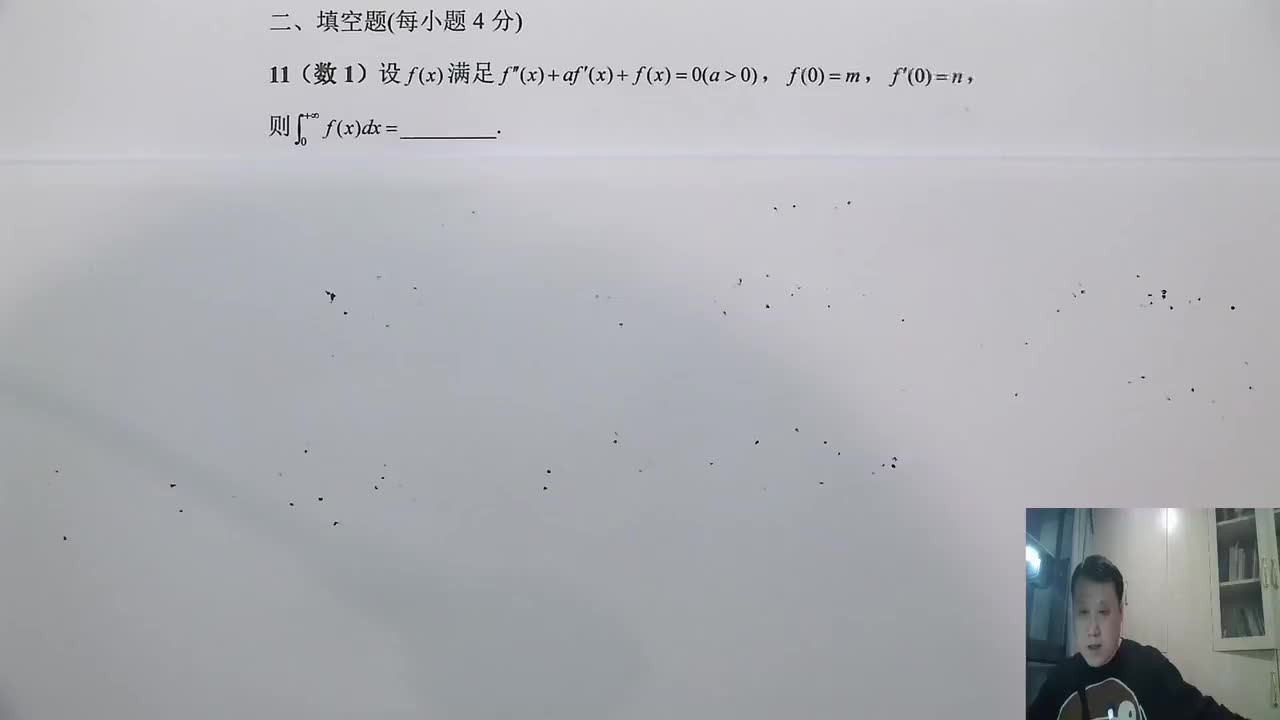 二、填空题(每小题 4 分)
11（数 1）设 f(x) 满足 f″(x)+af′(x)+f(x)=0(a>0)， f(0)=m， f′(0)=n，
则∫₀⁺∞ f(x)dx=________.